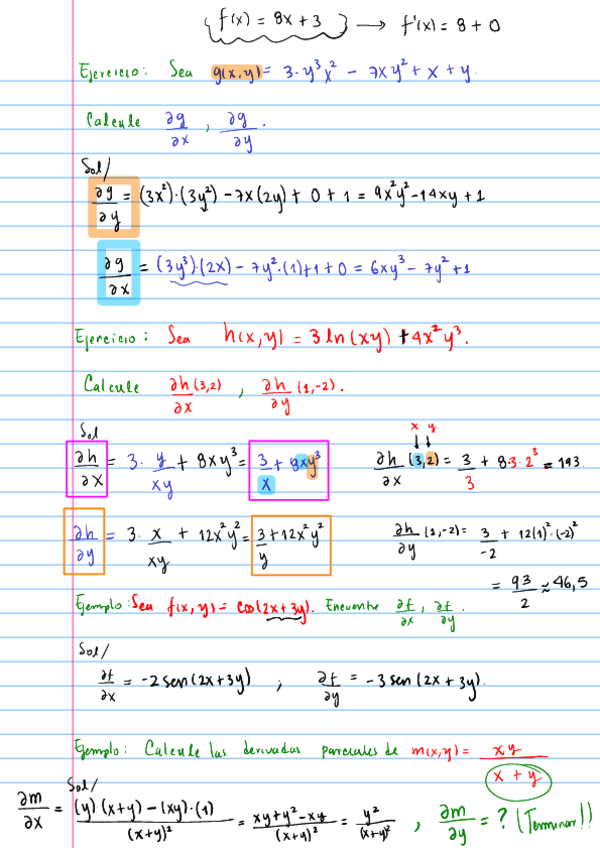 f(x) = 8x + 3 → f'(x) = 8 + 0
Ejercicio: Sea g(x,y) = 3·y³x² − 7xy² + x + y.
Calcule ∂g/∂x , ∂g/∂y.
Sol/
∂g/∂y = (3x²)·(3y²) − 7x(2y) + 0 + 1 = 9x²y² − 14xy + 1
∂g/∂x = (3y³)·(2x) − 7y²·(1) + 1 + 0 = 6xy³ − 7y² + 1
Ejercicio: Sea h(x,y) = 3 ln(xy) + 4x²y³.
Calcule ∂h/∂x (3,2) , ∂h/∂y (1,-2).
Sol
x y
∂h/∂x = 3· y/xy + 8xy³ = 3/x + 8xy³ ∂h/∂x (3,2) = 3/3 + 8·3·2³ = 193
∂h/∂y = 3· x/xy + 12x²y² = 3/y + 12x²y² ∂h/∂y (1,-2) = 3/-2 + 12(1)²·(-2)²
= 93/2 ≈ 46,5
Ejemplo: Sea f(x,y) = cos(2x+3y). Encuentre ∂f/∂x , ∂f/∂y.
Sol/
∂f/∂x = −2 sen(2x+3y) ; ∂f/∂y = −3 sen(2x + 3y).
Ejemplo: Calcule las derivadas parciales de m(x,y) = xy/x + y
Sol/
∂m/∂x = (y)(x+y) − (xy)·(1)/(x+y)² = xy+y²−xy/(x+y)² = y²/(x+y)² , ∂m/∂y = ? (Terminar!!)